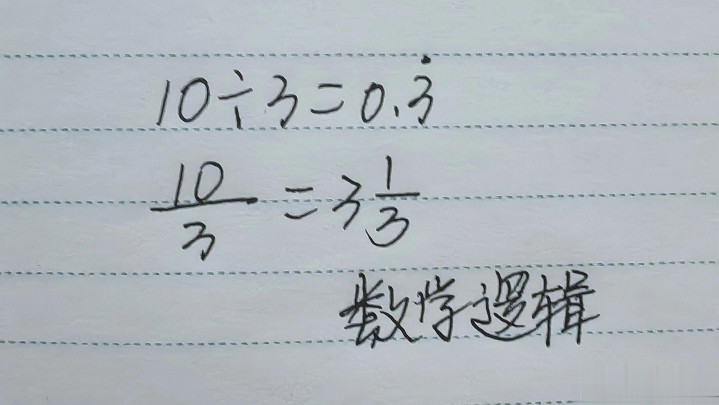 10÷3=0.3̇
10/3=3 1/3
数学逻辑